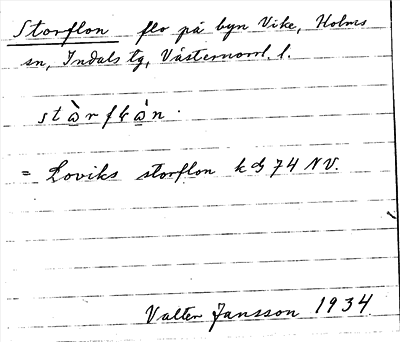 Storflon flo på byn Vike, Holms
sn, Indals tg, Västernorrl. l.
stàrflàn.
= Loviks storflon kbl 74 NV.
Valter Jansson 1934